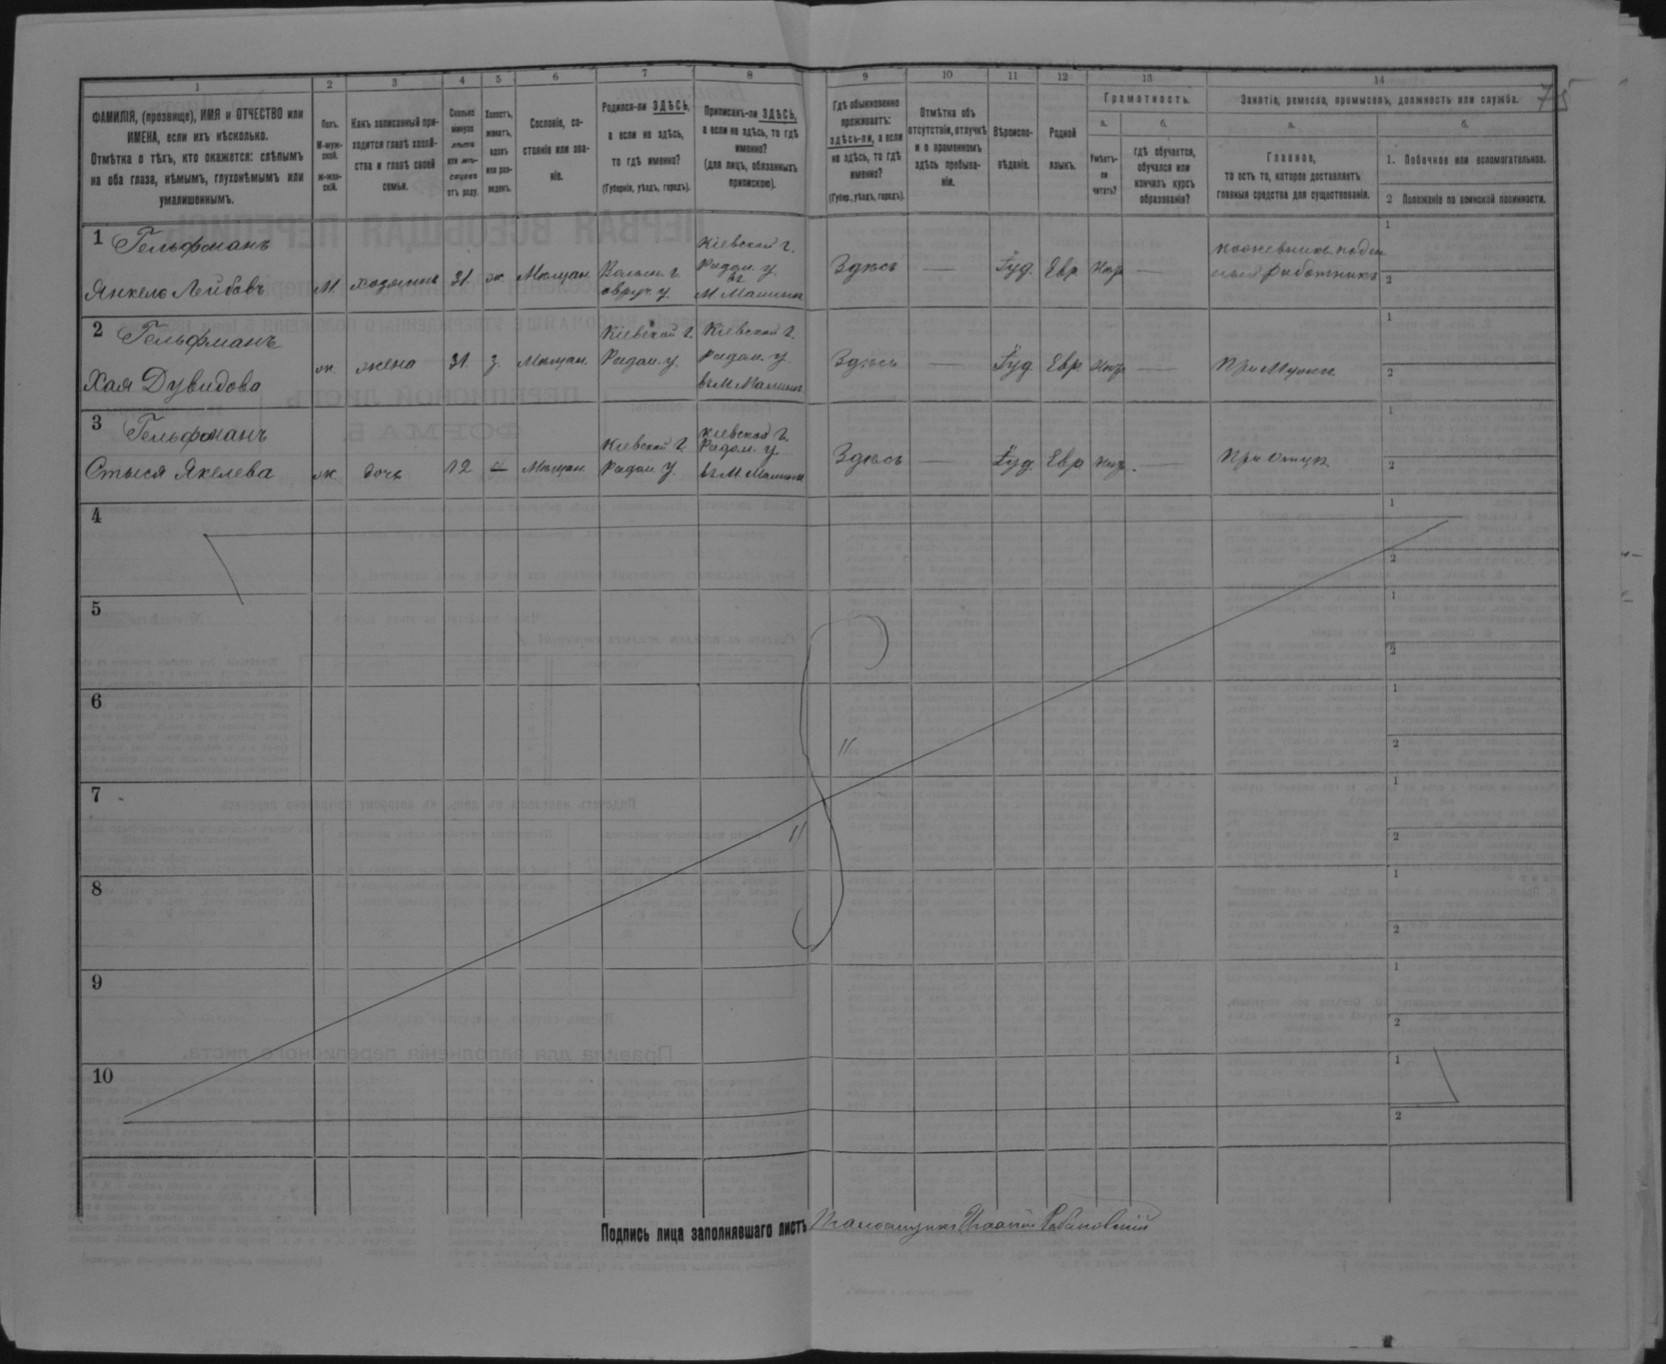 1 2 3 4 5 6 7 8 9 10 11 12 13 14
75
ФАМИЛІЯ, (прозвище), ИМЯ и ОТЧЕСТВО или
ИМЕНА, если ихъ нѣсколько.
Отмѣтка о тѣхъ, кто окажется: слѣпымъ
на оба глаза, нѣмымъ, глухонѣмымъ или
умалишеннымъ.
Полъ.
М-муж-
ской.
ж-жен-
скій.
Какъ записанный при-
ходится главѣ хозяй-
ства и главѣ своей
семьи.
Сколько
минуло
лѣтъ
или мѣ-
сяцевъ
отъ роду.
Холостъ,
женатъ,
вдовъ
или раз-
веденъ.
Сословіе, со-
стояніе или зва-
ніе.
Родился-ли ЗДѢСЬ,
а если не здѣсь,
то гдѣ именно?
(Губернія, уѣздъ, городъ).
Приписанъ-ли ЗДѢСЬ,
а если не здѣсь, то гдѣ
именно?
(для лицъ, обязанныхъ
припискою).
Гдѣ обыкновенно
проживаетъ:
здѣсь-ли, а если
не здѣсь, то гдѣ
именно?
(Губер., уѣздъ, городъ).
Отмѣтка объ
отсутствіи, отлучкѣ
и о временномъ
здѣсь пребыва-
ніи.
Вѣроиспо-
вѣданіе.
Родной
языкъ.
Грамотность.
а.
Умѣетъ-
ли
читать?
б.
гдѣ обучается,
обучался или
кончилъ курсъ
образованія?
Занятіе, ремесло, промыселъ, должность или служба.
а.
Главное,
то есть то, которое доставляетъ
главныя средства для существованія.
б.
1. Побочное или вспомогательное.
2 Положеніе по воинской повинности.
1 Гельфманъ
Янкель Лейбовъ
М
хозяинъ
31
ж
Мѣщан.
Волын. г.
овруч. у.
Кіевской г.
Радом. у.
въ
М Малинѣ
Здѣсь
—
Іуд.
Евр
Нѣт
—
поденный работникъ
1
2
2 Гельфманъ
Хая Дувидова
ж
жена
31
з.
Мѣщан.
Кіевской г.
Радом. у.
Кіевской г.
Радом. у.
въ М Малинѣ
Здѣсь
—
Іуд.
Евр
Нѣт
—
При Мужѣ
1
2
3 Гельфманъ
Стыся Якелева
ж
дочь
12
—
Мѣщан.
Кіевской г.
Радом. у.
Кіевской г.
Радом. у.
въ М Малинѣ
Здѣсь
—
Іуд.
Евр
Нѣт.
—
При отцѣ
1
2
4
1
2
5
1
2
6
1
2
7
1
2
8
1
2
9
1
2
10
1
2
Подпись лица заполнявшаго листъ